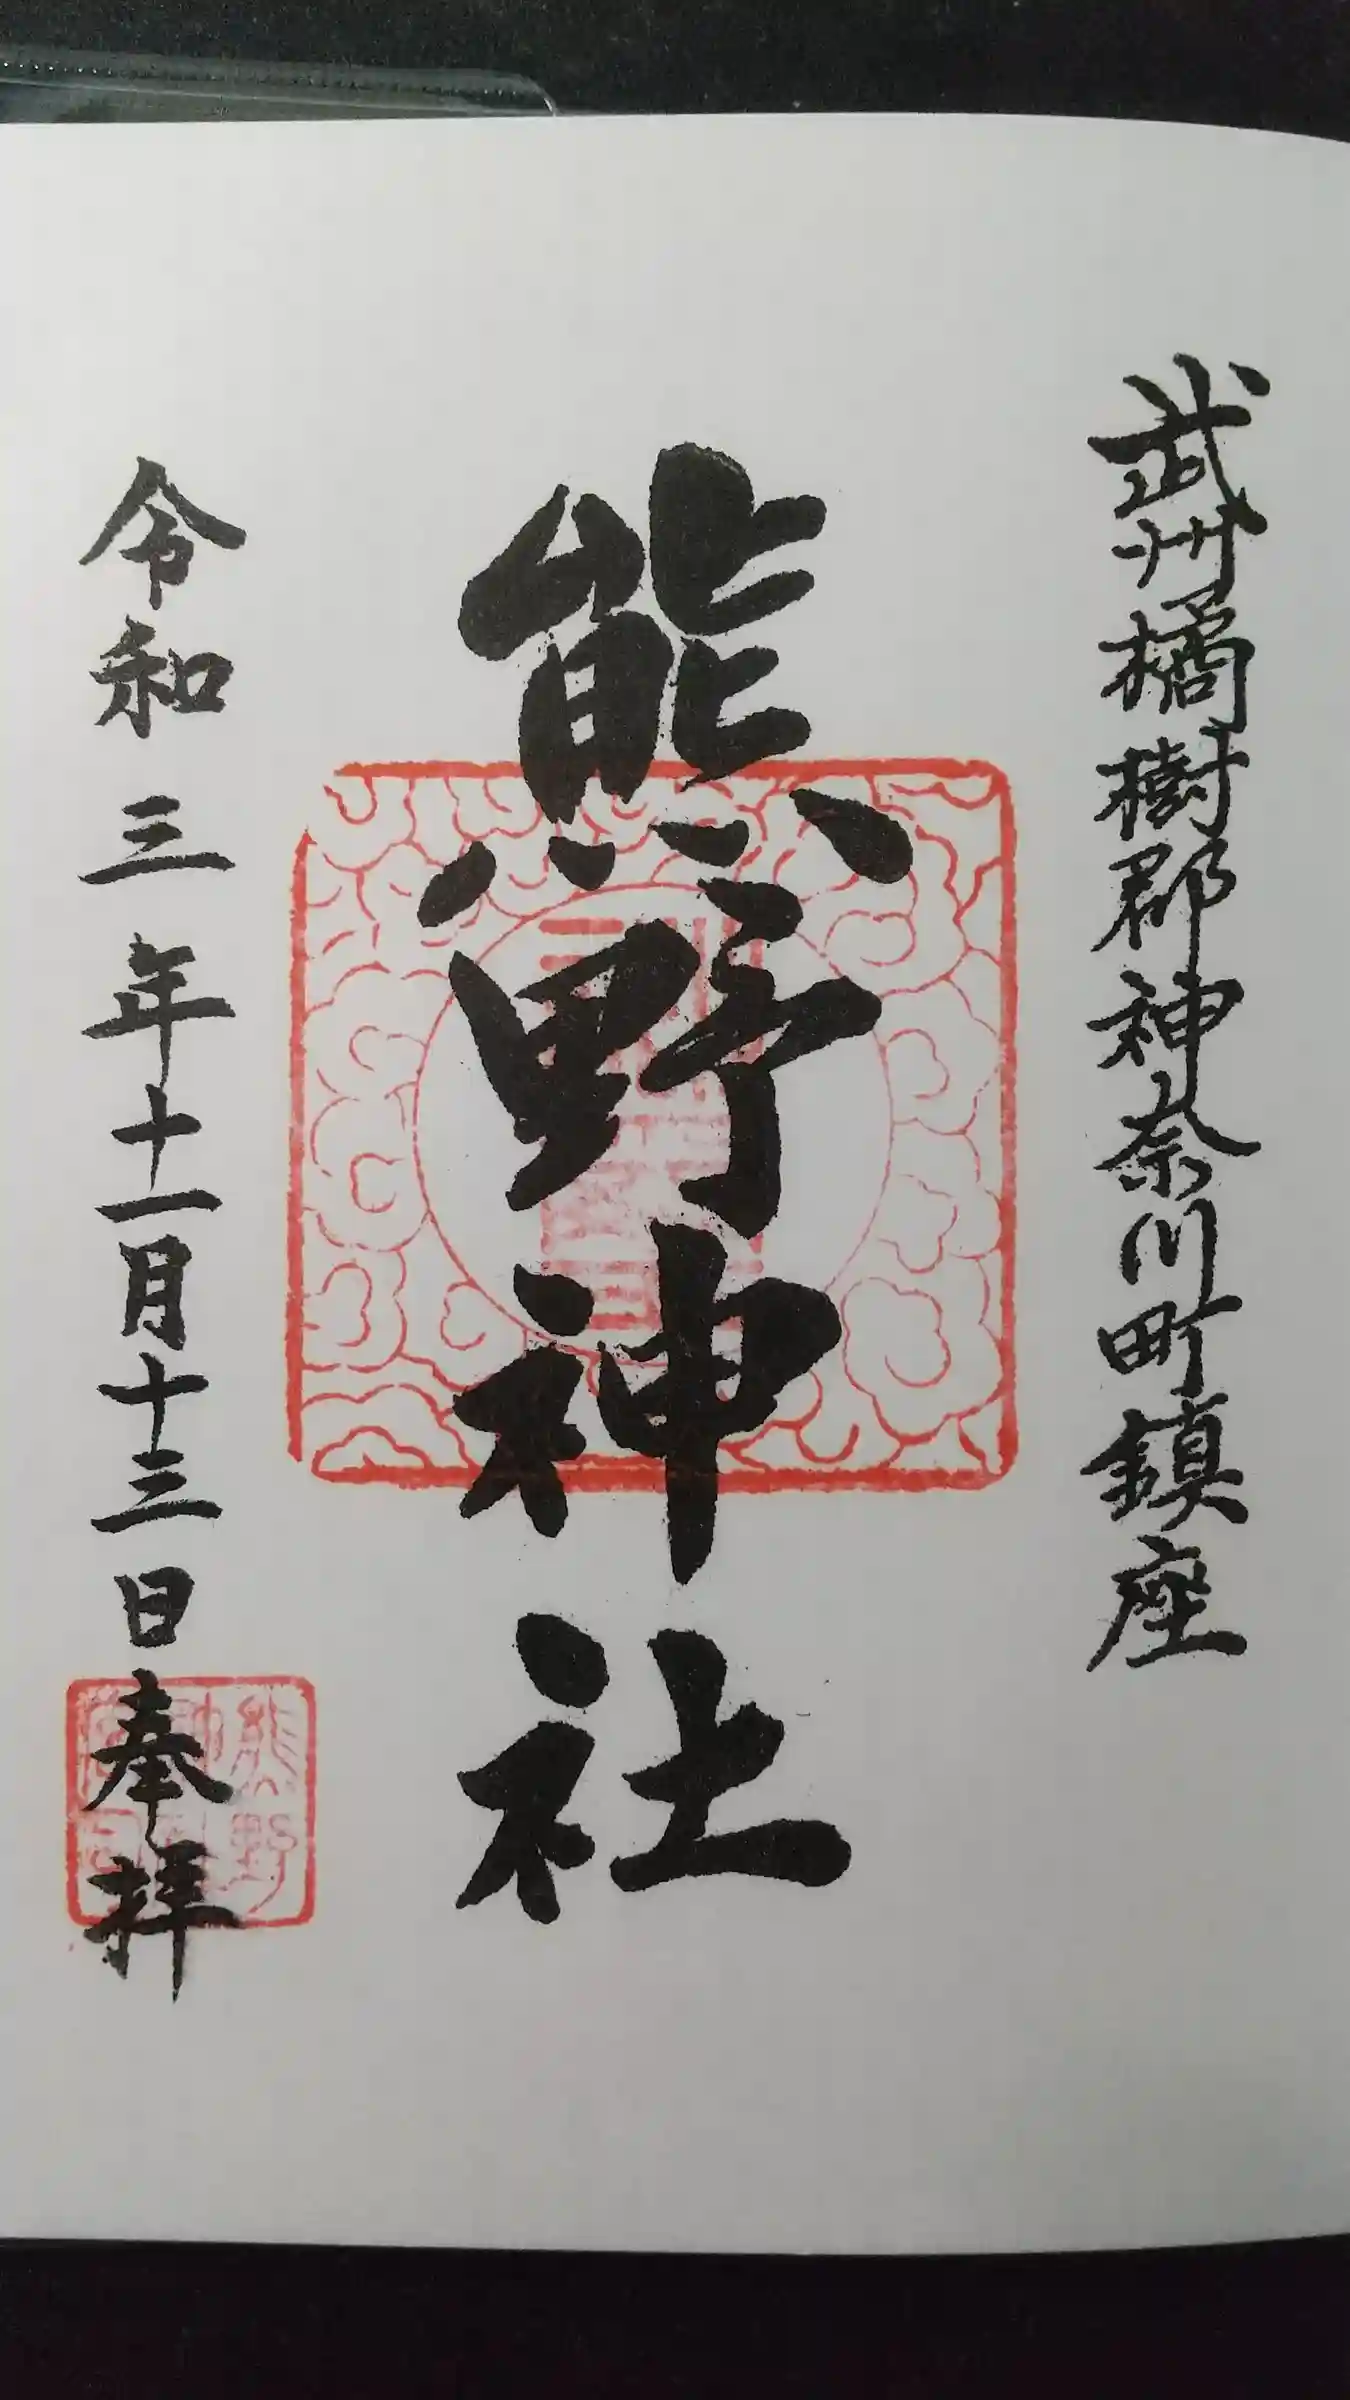 武州橘樹郡神奈川町鎮座
熊野神社
令和三年十一月十三日奉拝
熊野